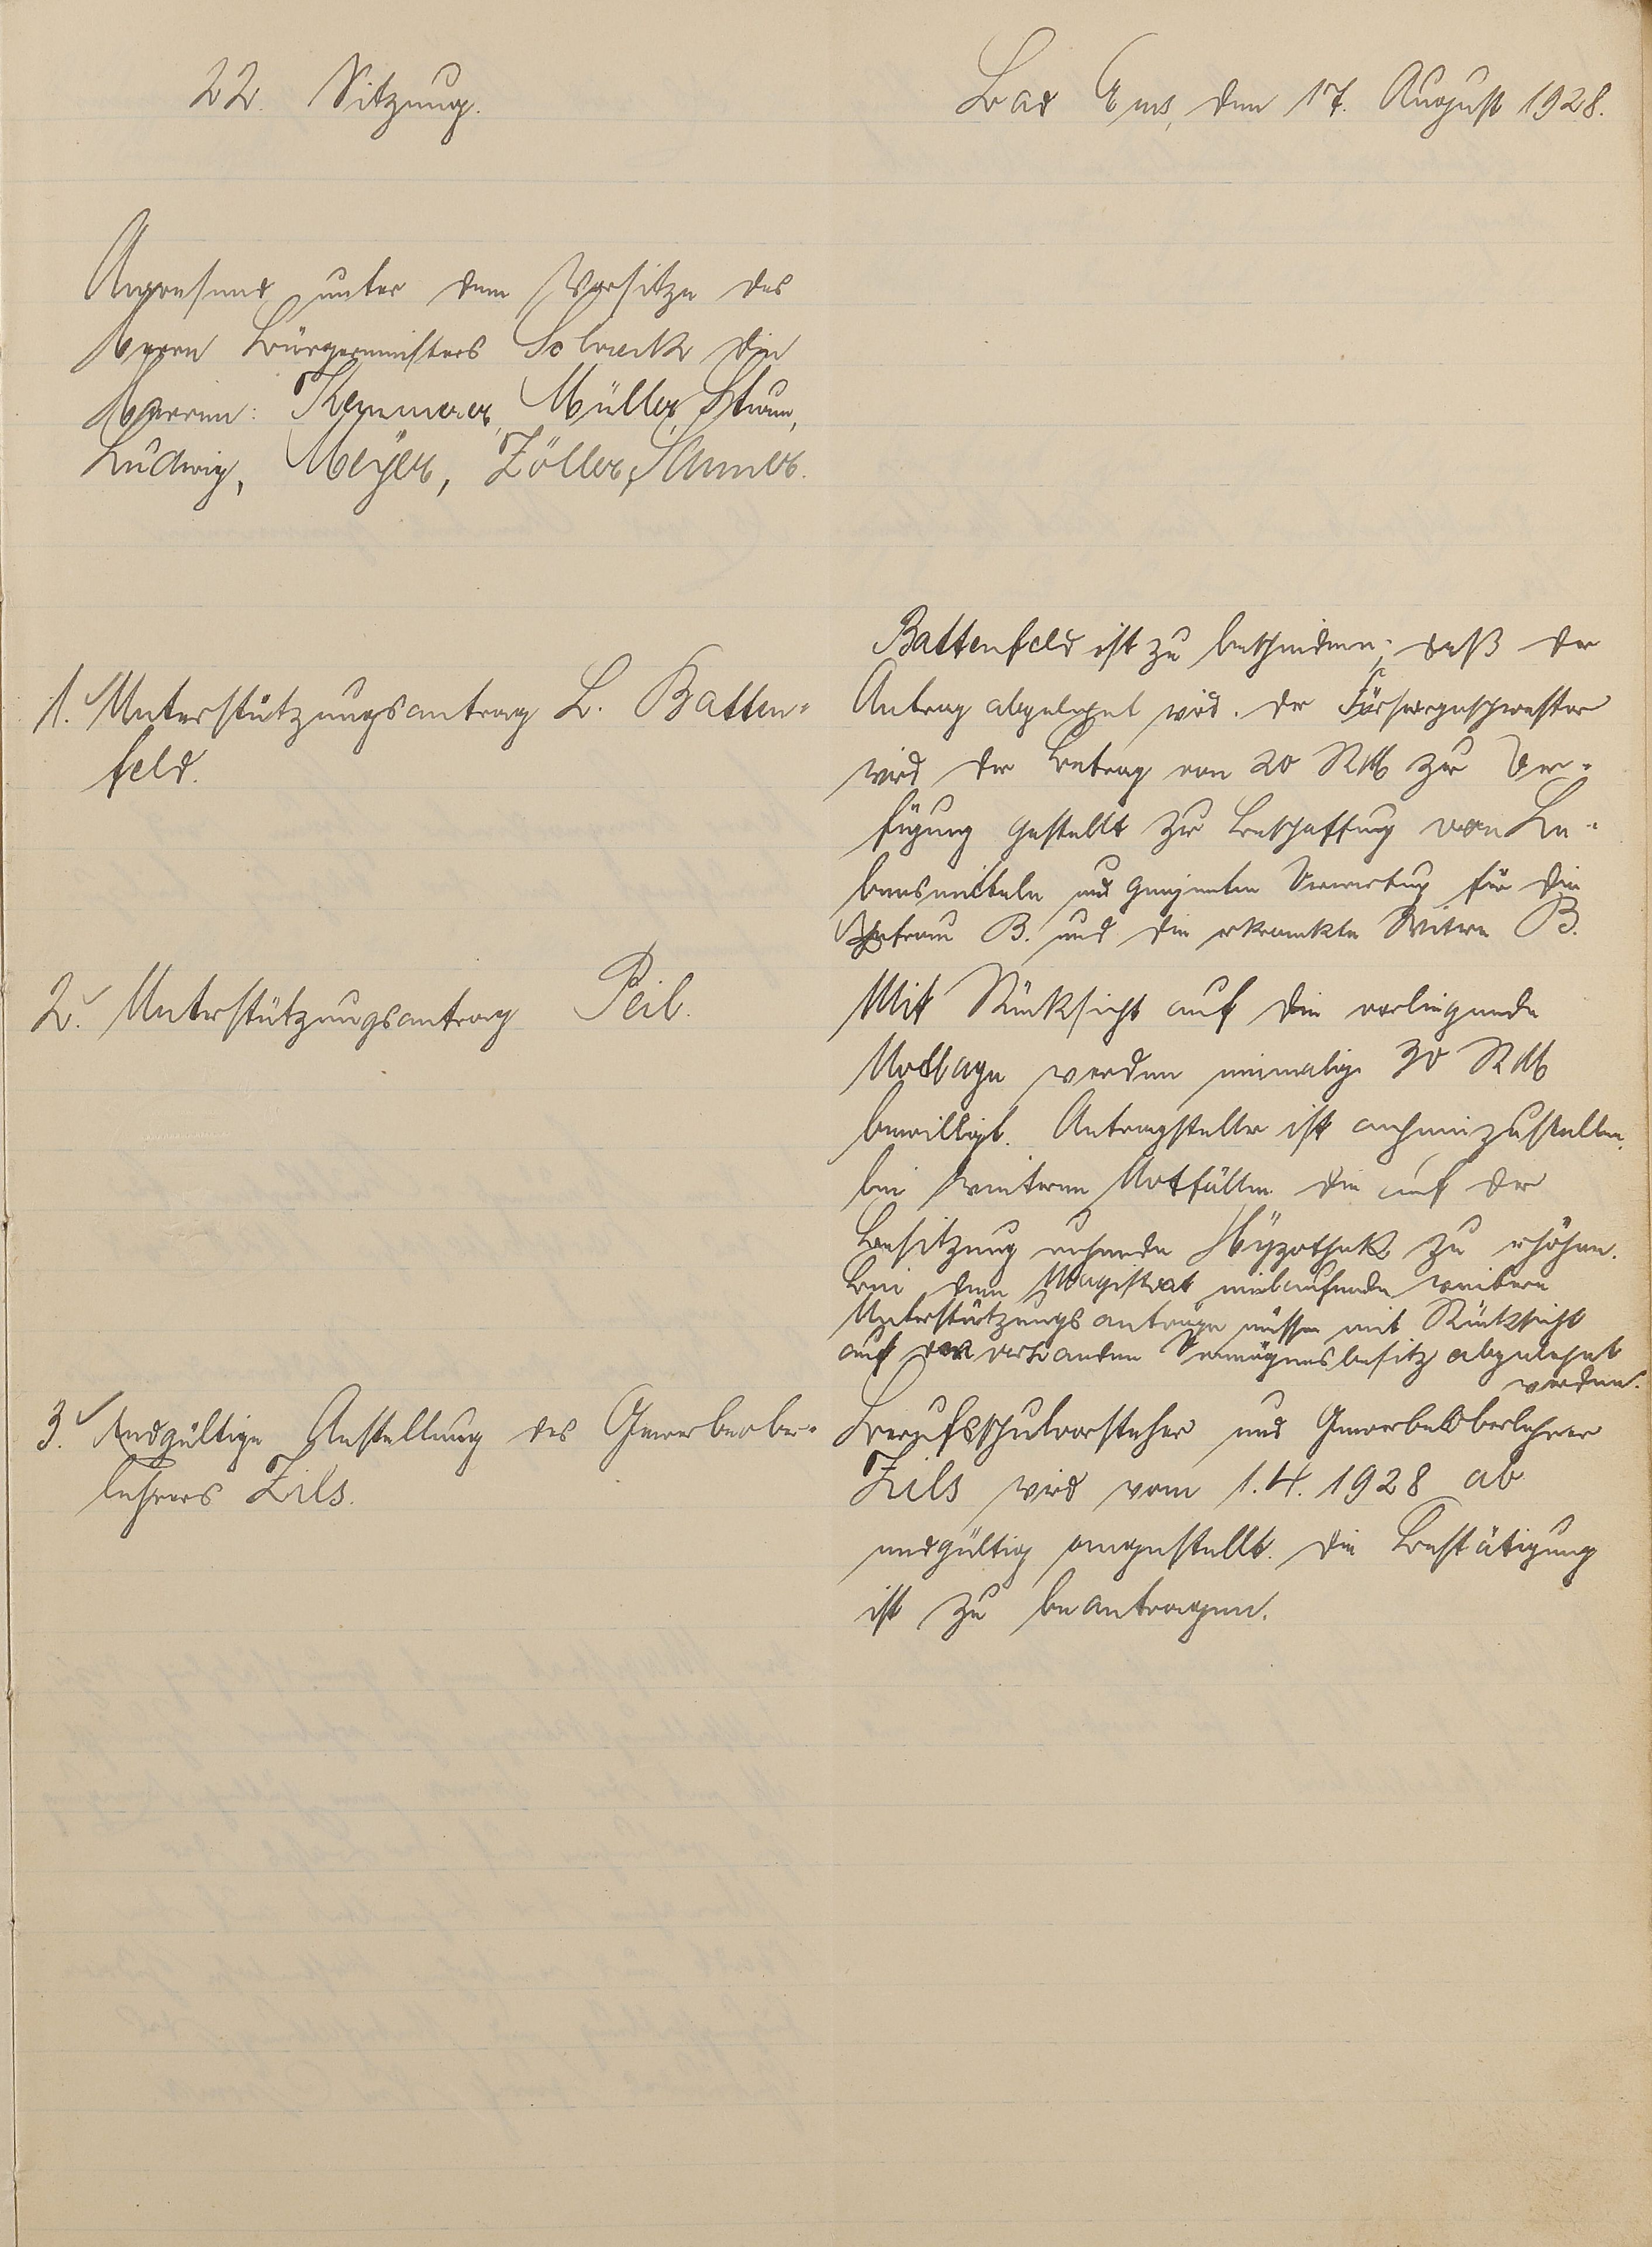 22. Sitzung.
Bad Ems, den 17. August 1928.
Anwesend unter dem Vorsitze des
Herrn Bürgermeisters Schreck die
Herren: Kemmerer, Müller, Sturm,
Ludwig, Meyer, Zöller,
1. Unterstützungsantrag L. Batten-
feld.
Battenfeld ist zu bescheiden, daß der
Antrag abgelehnt wird. Der Fürsorgeschwester
wird der Betrag von 20 RM zur Ver-
fügung gestellt zur Beschaffung von Le-
bensmitteln und geeigneten Verwertung für die
Ehefrau B. und die erkrankte Witwe B.
2. Unterstützungsantrag Peil.
Mit Rücksicht auf die vorliegende
Notlage werden einmalig 30 RM
bewilligt. Antragsteller ist anheimzustellen,
bei weiteren Notfällen die auf der
Besitzung ruhende Hypothek zu erhöhen.
Bei dem Magistrat einlaufende weitere
Unterstützungsanträge müssen mit Rücksicht
auf den vorhanden Vermögensbesitz abgelehnt
werden.
3. Endgültige Anstellung des Gewerbeober-
lehrers Zils.
Berufsschulvorsteher und Gewerbeoberlehrer
Zils wird vom 1.4.1928 ab
endgültig angestellt. Die Bestätigung
ist zu beantragen.